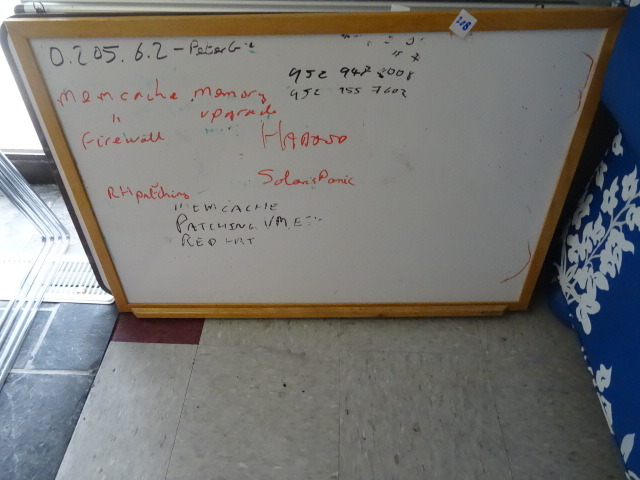 0.205.6.2 - Peter
952 947 2008
memcache memory
952 955 7602
" upgrade
Firewall Hadoop
Solaris Panic
RH patching
MEMCACHE
PATCHING VM
RED HAT